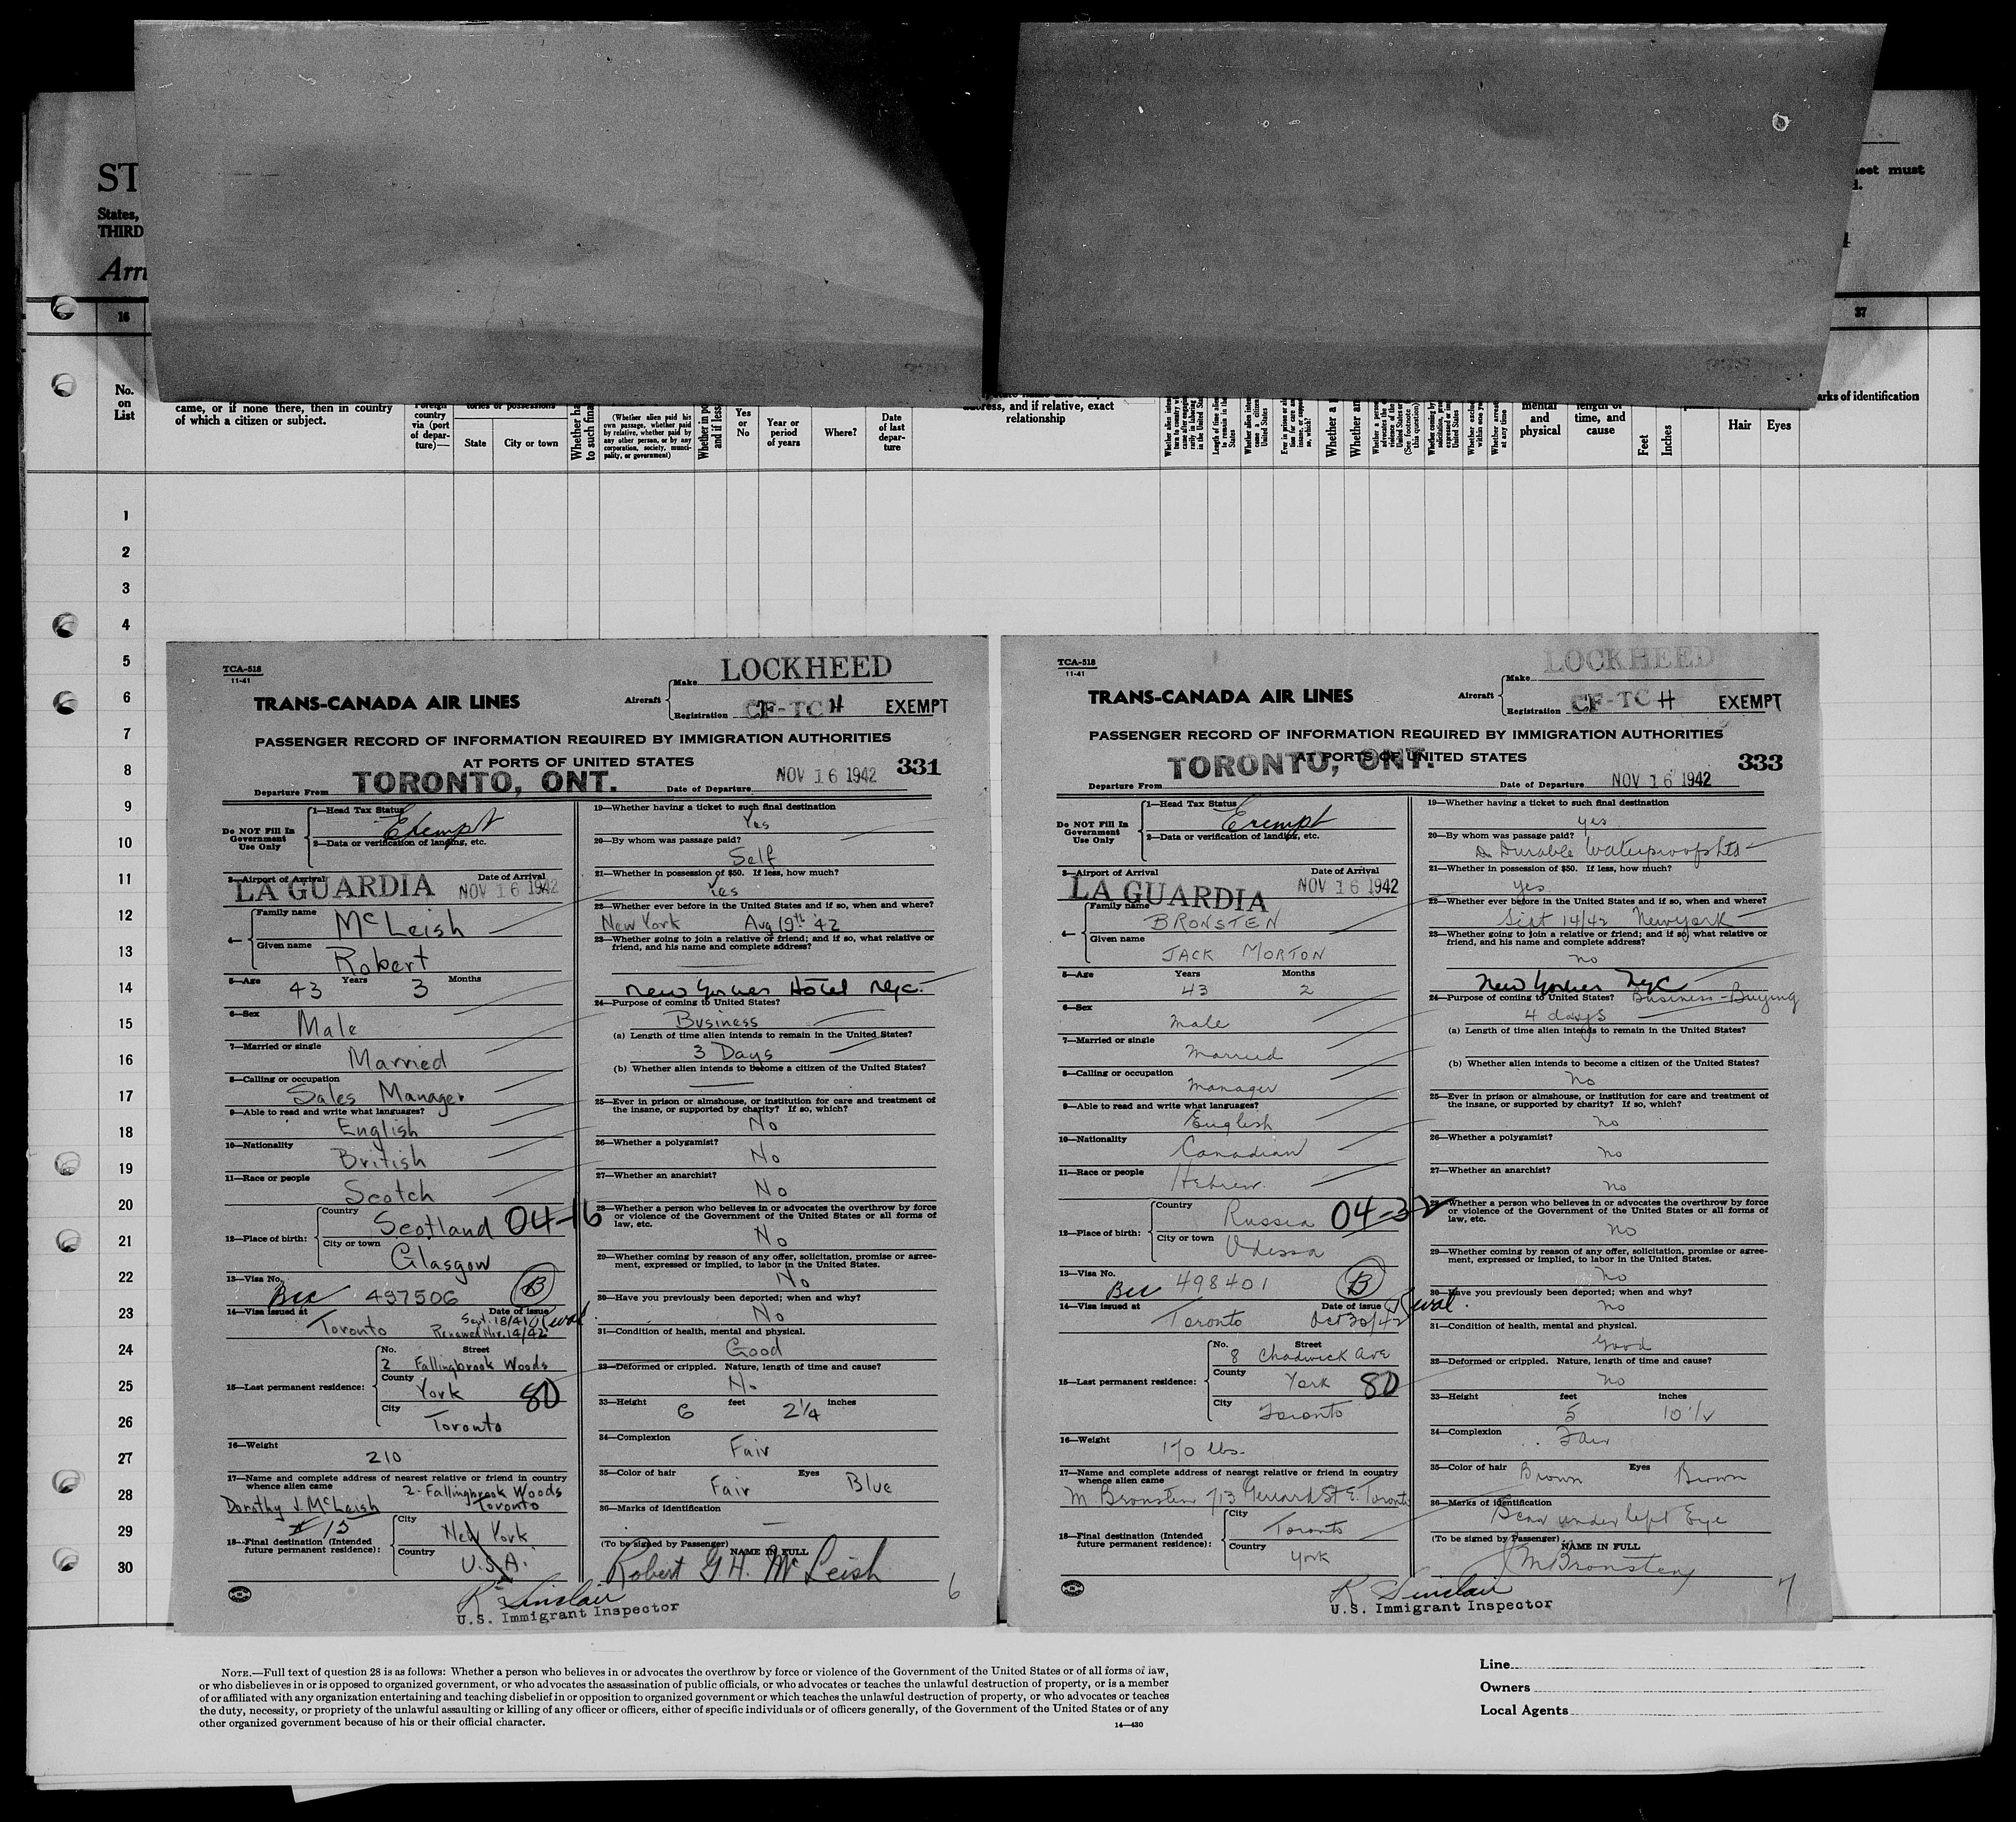 ST
States,
THIRD
Arri
eet must
d.
16
37
No.
on
List
came, or if none there, then in country
of which a citizen or subject.
Foreign
country
via (port
of depar-
ture)—
State
City or town
(Whether alien paid his
own passage, whether paid
by relative, whether paid by
any other person, or by any
corporation, society, munici-
pality, or government)
Yes
or
No
Year or
period
of years
Where?
Date
of last
depar-
ture
ress, and if relative, exact
relationship
mental
and
physical
length of
time, and
cause
Feet
Inches
Hair
Eyes
arks of identification
1
2
3
4
5
6
7
8
9
10
11
12
13
14
15
16
17
18
19
20
21
22
23
24
25
26
27
28
29
30
TCA-518
11-41
TRANS-CANADA AIR LINES
Aircraft
Make LOCKHEED
Registration CF-TCH EXEMPT
PASSENGER RECORD OF INFORMATION REQUIRED BY IMMIGRATION AUTHORITIES
AT PORTS OF UNITED STATES 331
Departure From TORONTO, ONT. Date of Departure NOV 16 1942
Do NOT Fill In
Government
Use Only
1—Head Tax Status
Exempt
2—Data or verification of landing, etc.
3—Airport of Arrival Date of Arrival
LA GUARDIA NOV 16 1942
4— Family name
McLeish
Given name
Robert
5—Age 43 Years 3 Months
6—Sex
Male
7—Married or single
Married
8—Calling or occupation
Sales Manager
9—Able to read and write what languages?
English
10—Nationality
British
11—Race or people
Scotch
12—Place of birth:
Country
Scotland 04-16
City or town
Glasgow
13—Visa No.
Bcc 497506 B
14—Visa issued at Date of issue
Toronto Sept. 18/41
Renewed Nov. 14/42
15—Last permanent residence:
No. Street
2 Fallingbrook Woods
County
York 80
City
Toronto
16—Weight
210
17—Name and complete address of nearest relative or friend in country
whence alien came
2 Fallingbrook Woods
Dorothy J. McLeish Toronto
18—Final destination (Intended
future permanent residence):
City
New York
Country
U.S.A.
19—Whether having a ticket to such final destination
Yes
20—By whom was passage paid?
Self
21—Whether in possession of $50. If less, how much?
Yes
22—Whether ever before in the United States and if so, when and where?
New York Aug 19th 42
23—Whether going to join a relative or friend; and if so, what relative or
friend, and his name and complete address?
New Yorker Hotel NYC.
24—Purpose of coming to United States?
Business
(a) Length of time alien intends to remain in the United States?
3 Days
(b) Whether alien intends to become a citizen of the United States?
25—Ever in prison or almshouse, or institution for care and treatment of
the insane, or supported by charity? If so, which?
No
26—Whether a polygamist?
No
27—Whether an anarchist?
No
28—Whether a person who believes in or advocates the overthrow by force
or violence of the Government of the United States or all forms of
law, etc.
No
29—Whether coming by reason of any offer, solicitation, promise or agree-
ment, expressed or implied, to labor in the United States.
No
30—Have you previously been deported; when and why?
No
31—Condition of health, mental and physical.
Good
32—Deformed or crippled. Nature, length of time and cause?
No
33—Height 6 feet 2¼ inches
34—Complexion
Fair
35—Color of hair Eyes
Fair Blue
36—Marks of identification
—
(To be signed by Passenger) NAME IN FULL
Robert G H. McLeish
K Sinclair
U.S. Immigrant Inspector
6
TCA-518
11-41
TRANS-CANADA AIR LINES
Aircraft
Make LOCKHEED
Registration CF-TCH EXEMPT
PASSENGER RECORD OF INFORMATION REQUIRED BY IMMIGRATION AUTHORITIES
AT PORTS OF UNITED STATES 333
Departure From TORONTO, ONT. Date of Departure NOV 16 1942
Do NOT Fill In
Government
Use Only
1—Head Tax Status
Exempt
2—Data or verification of landing, etc.
3—Airport of Arrival Date of Arrival
LA GUARDIA NOV 16 1942
4— Family name
BRONSTEN
Given name
JACK MORTON
5—Age Years Months
43 2
6—Sex
male
7—Married or single
Married
8—Calling or occupation
Manager
9—Able to read and write what languages?
English
10—Nationality
Canadian
11—Race or people
Hebrew.
12—Place of birth:
Country
Russia 04-32
City or town
Odessa
13—Visa No.
Bcc 498401 B
14—Visa issued at Date of issue
Toronto Oct 30/42
15—Last permanent residence:
No. Street
8 Chadwick Ave
County
York 80
City
Toronto
16—Weight
170 lbs.
17—Name and complete address of nearest relative or friend in country
whence alien came
M Bronsten 713 Gerrard St E. Toronto
18—Final destination (Intended
future permanent residence):
City
Toronto
Country
York
19—Whether having a ticket to such final destination
yes
20—By whom was passage paid?
Durable Waterproof Ltd
21—Whether in possession of $50. If less, how much?
yes
22—Whether ever before in the United States and if so, when and where?
Sept 14/42 New York
23—Whether going to join a relative or friend; and if so, what relative or
friend, and his name and complete address?
no
New Yorker NYC
24—Purpose of coming to United States? Business-Buying
4 days
(a) Length of time alien intends to remain in the United States?
(b) Whether alien intends to become a citizen of the United States?
no
25—Ever in prison or almshouse, or institution for care and treatment of
the insane, or supported by charity? If so, which?
no
26—Whether a polygamist?
no
27—Whether an anarchist?
no
28—Whether a person who believes in or advocates the overthrow by force
or violence of the Government of the United States or all forms of
law, etc.
no
29—Whether coming by reason of any offer, solicitation, promise or agree-
ment, expressed or implied, to labor in the United States.
no
30—Have you previously been deported; when and why?
no
31—Condition of health, mental and physical.
Good
32—Deformed or crippled. Nature, length of time and cause?
no
33—Height feet inches
5 10½
34—Complexion
Fair
35—Color of hair Brown Eyes Brown
36—Marks of identification
Scar under left Eye
(To be signed by Passenger) NAME IN FULL
J M Bronsten
K Sinclair
U.S. Immigrant Inspector
7
NOTE.—Full text of question 28 is as follows: Whether a person who believes in or advocates the overthrow by force or violence of the Government of the United States or of all forms of law,
or who disbelieves in or is opposed to organized government, or who advocates the assassination of public officials, or who advocates or teaches the unlawful destruction of property, or is a member
of or affiliated with any organization entertaining and teaching disbelief in or opposition to organized government or which teaches the unlawful destruction of property, or who advocates or teaches
the duty, necessity, or propriety of the unlawful assaulting or killing of any officer or officers, either of specific individuals or of officers generally, of the Government of the United States or of any
other organized government because of his or their official character.
14—430
Line
Owners
Local Agents